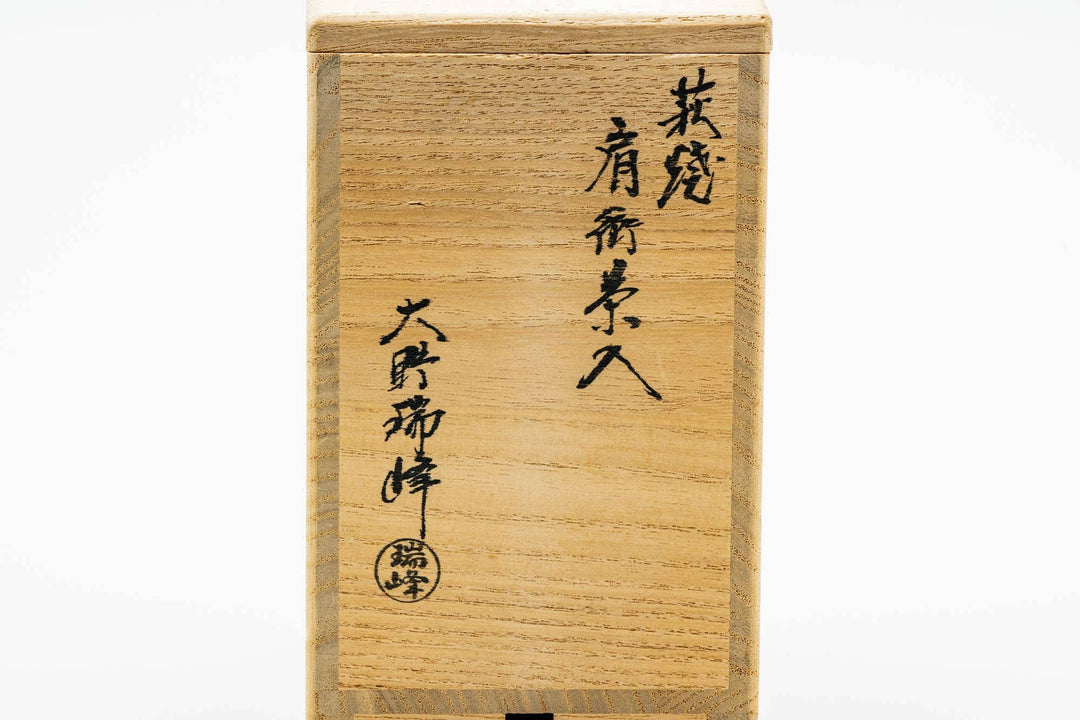 萩焼
肩衝茶入
大野瑞峰
瑞峰